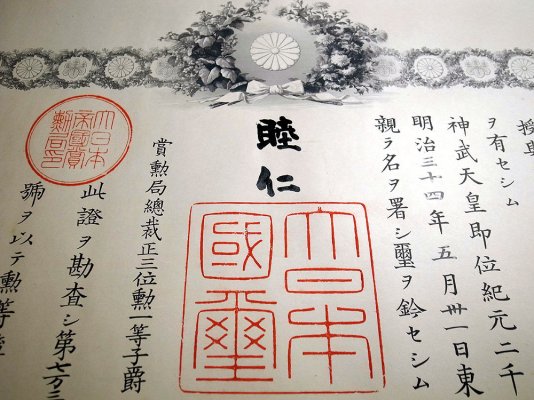 授與
ヲ有セシム
神武天皇即位紀元二千
明治三十四年五月卅一日東
親ラ名ヲ署シ璽ヲ鈐セシム
睦仁
大日本
國璽
賞勲局總裁正三位勲一等子爵
大日本
帝國賞
勲局印
此證ヲ勘査シ第七万三
號ヲ以テ勲等